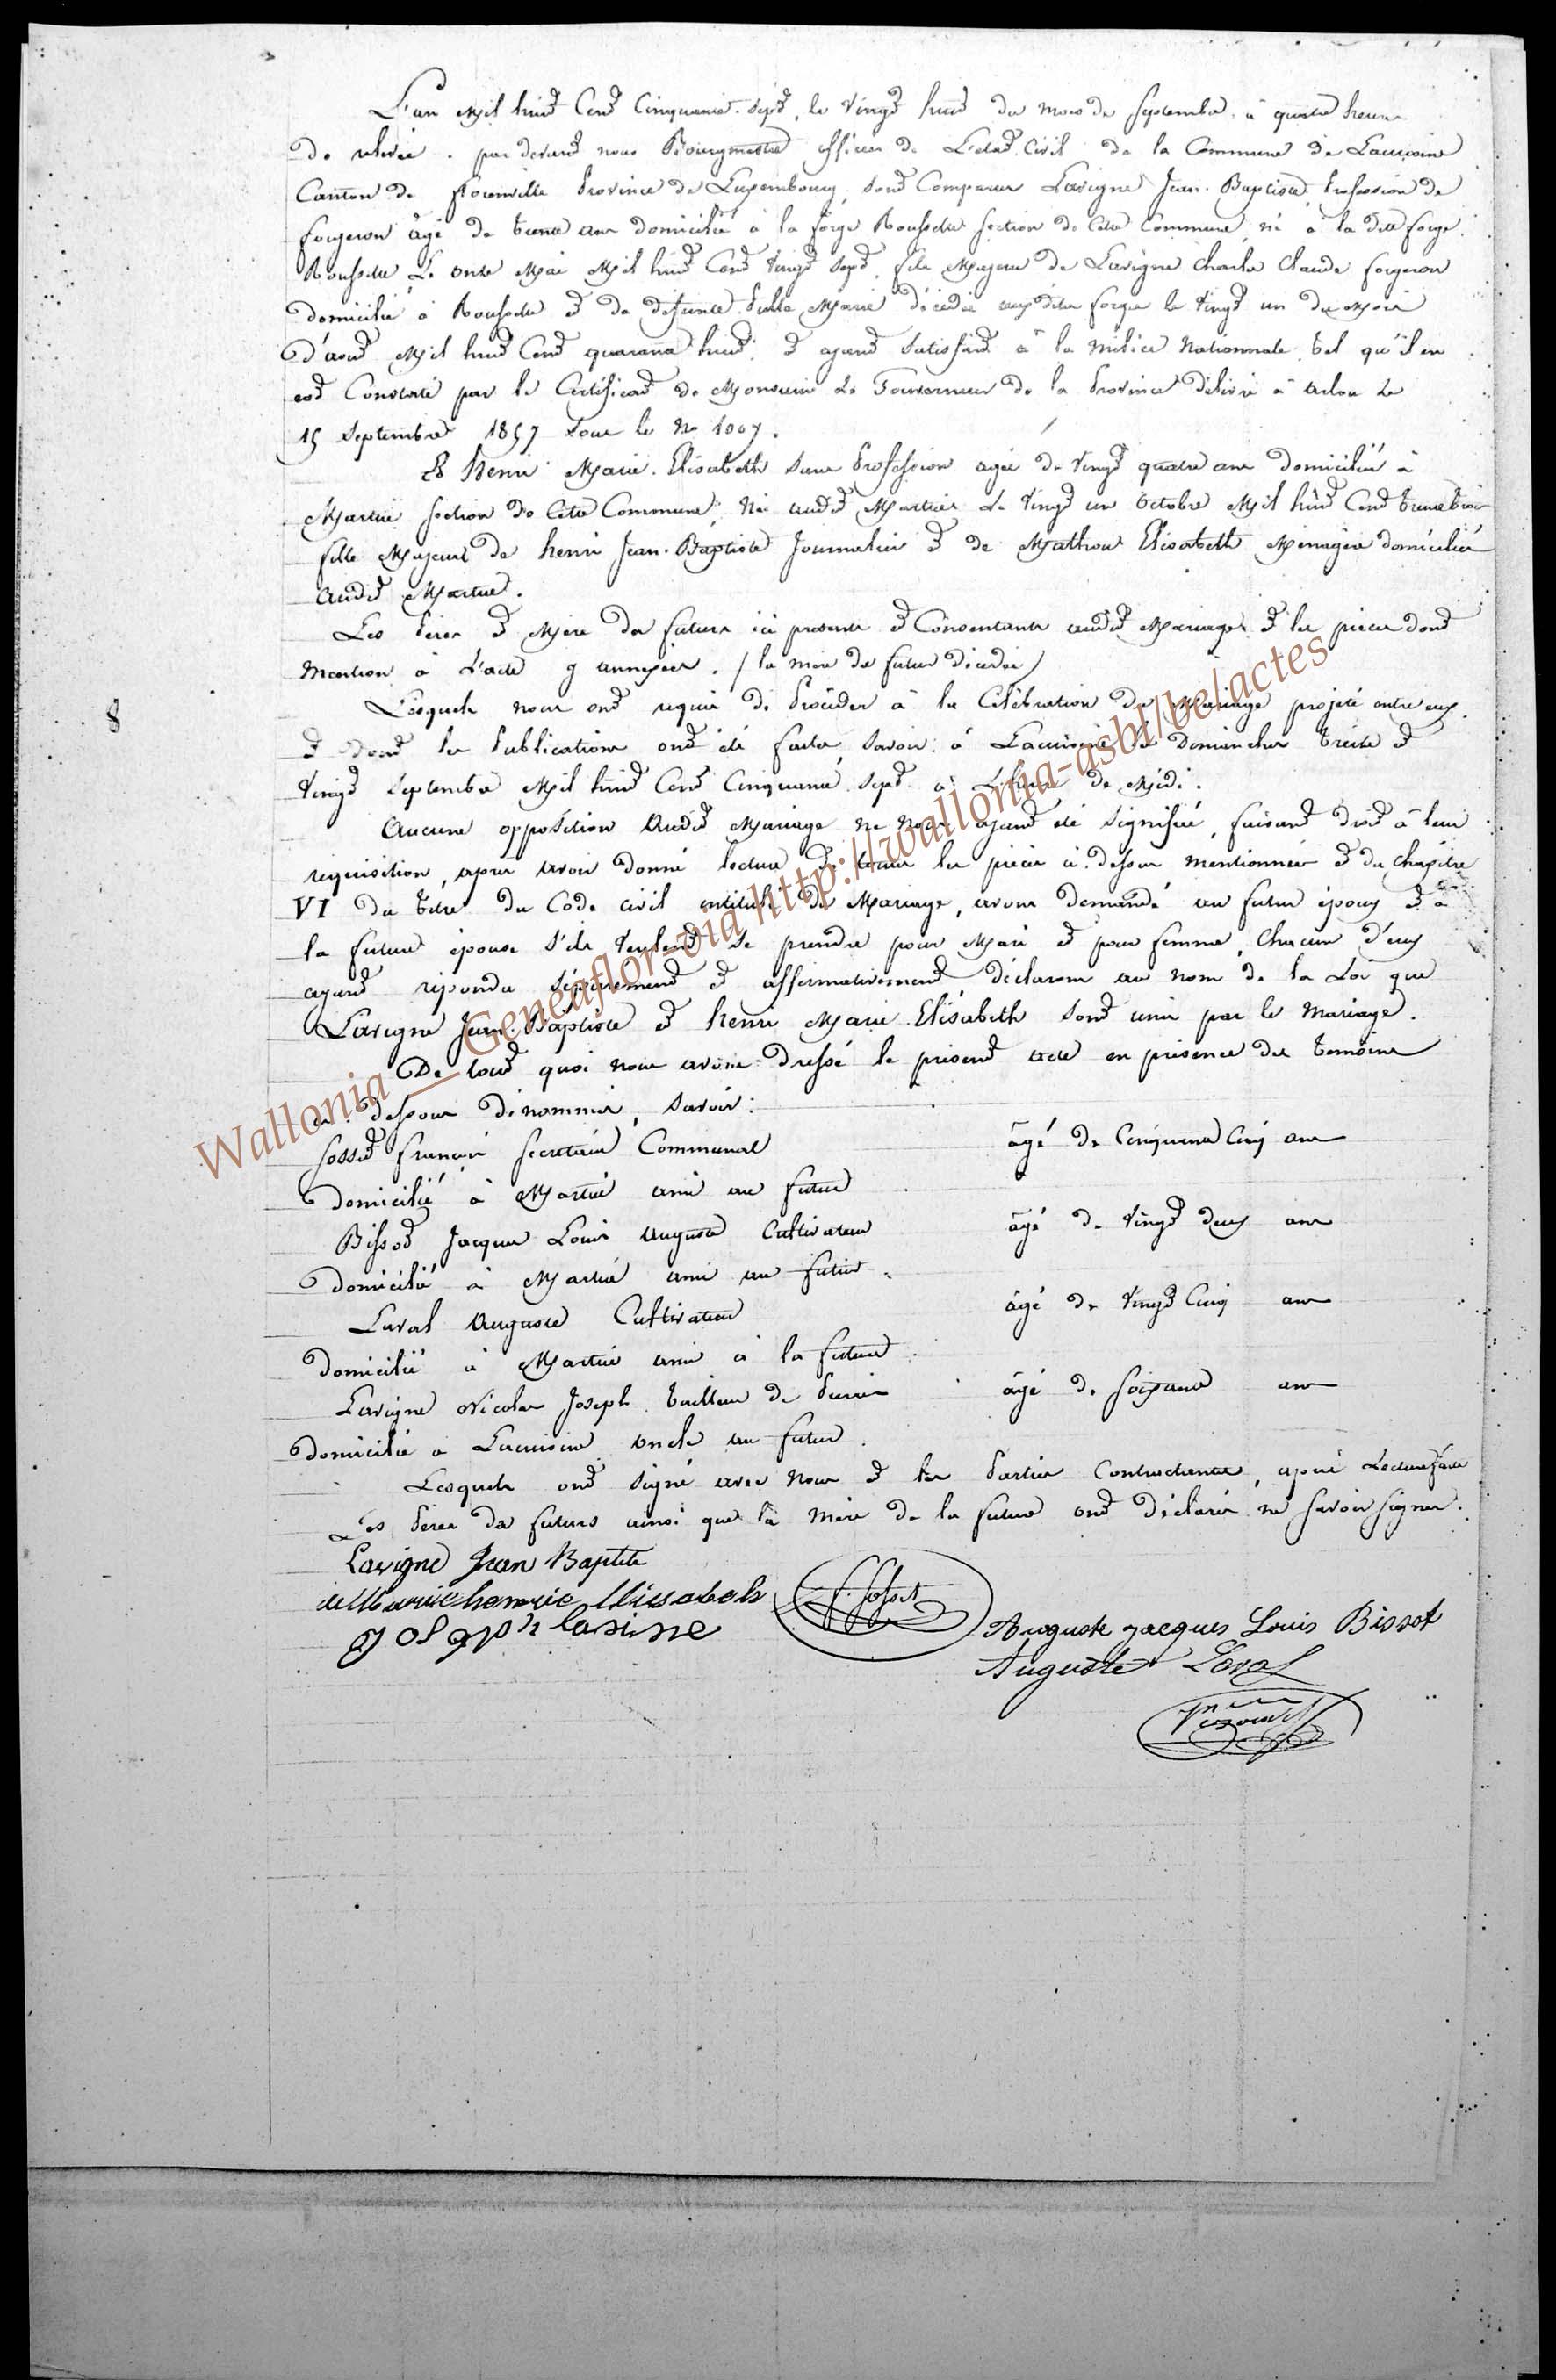 L'an Mil huit Cent Cinquante-Sept, le Vingt huit du mois de Septembre, à quatre heures
de relevée, par devant nous Bourgmestre officier de L'état Civil de la Commune de Lacuisine
Canton de florenville Province de Luxembourg, Sont Comparus Lavigne Jean-Baptiste, Profession de
forgeron âgé de trente ans domicilié à la forge Roussette Section de Cette Commune, né à la dite forge
Roussette Le onze Mai Mil huit Cent Vingt Sept, fils Majeur de Lavigne Charles Claude forgeron
domicilié à Roussette et de défunte Marie décédée forge le Vingt un du Mois
d'août Mil huit Cent quarante huit, et ayant Satisfait à la milice Nationnale, tel qu'il en
est Constaté par le Certificat de Monsieur Le Gouverneur de la Province délivré à arlon Le
15 Septembre 1857 Sous le No 1007.
Et henri Marie-Elisabeth Sans Profession agée de Vingt quatre ans domiciliée à
Martué Section de Cette Commune, Née audit Martué Le Vingt un Octobre Mil huit Cent trente trois
fille Majeure de henri Jean-Baptiste Journalier et de Mathieu Elisabeth Ménagère domiciliés
audit Martué.
Les Pères et Mère des futurs ici présents et Consentants audit Mariage et les pièces dont
mention à L'acte y annexées. (la mère du futur décédée)
Lesquels nous ont requis de Procéder à la Célébration du Mariage projeté entre eux
et dont les Publications ont été faites Savoir: à Lacuisine Les Dimanches treize et
Vingt Septembre Mil huit Cent Cinquante Sept à L'heure de Midi.
Aucune opposition audit Mariage ne Nous ayant été Signifiée, faisant droit à leur
réquisition, après avoir donné lecture de toutes les pièces ci-dessus mentionnées et du Chapitre
VI du titre du Code civil intitulé du Mariage, avons demandé au futur époux et à
la future épouse S'ils Veulent Se prendre pour Mari et pour femme, Chacun d'eux
ayant répondu Séparément et affirmativement, déclarons au nom de la Loi que
Lavigne Jean-Baptiste et henri Marie-Elisabeth Sont unis par le Mariage.
De tout quoi nous avons dressé le présent acte en présence des témoins
ci-dessous dénommés, Savoir:
Sosset François Secrétaire Communal âgé de Cinquante Cinq ans
domicilié à Martué ami au futur
Bissot Jacques Louis Auguste Cultivateur âgé de Vingt deux ans
domicilié à Martué ami au futur.
Laval Auguste Cultivateur âgé de Vingt Cinq ans
domicilié à Martué ami à la future.
Lavigne Nicolas Joseph tailleur de Pierres âgé de Soixante ans
domicilié à Lacuisine oncle au futur.
Lesquels ont Signé avec Nous et les Parties Contractantes, après Lecture faite
Les Pères des futurs ainsi que la Mère de la future ont déclaré ne Savoir Signer.
Lavigne Jean Baptite
Marie henrie Elisabeth
F. Sosset
Joseph lavine
Auguste Jacques Louis Bissot
Auguste Laval
8
Wallonia _ Geneaflor-via http://wallonia-asbl/be/actes